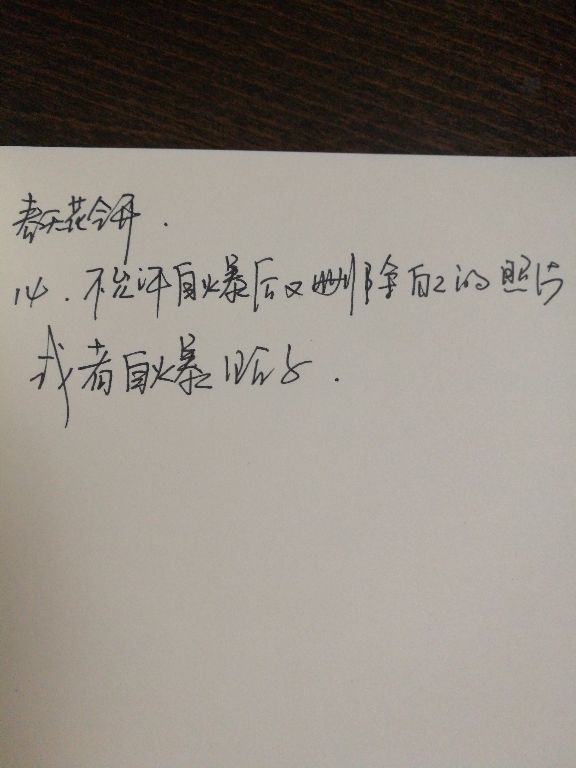 春天花会开.
14.不允许自爆后又删除自己的照片
或者自爆贴子.